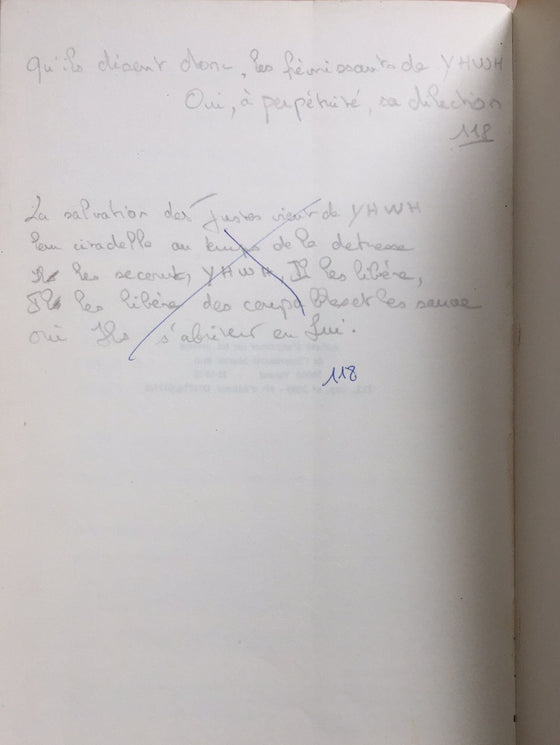 Qu'ils disent donc, les frémissants de YHWH
Oui, à perpétuité, sa dilection
118
La salvation des justes vient de YHWH
leur citadelle au temps de la détresse
Il les secourt, YHWH, Il les libère,
Il les libère des coupables et les sauve
oui Ils s'abritent en Lui.
118